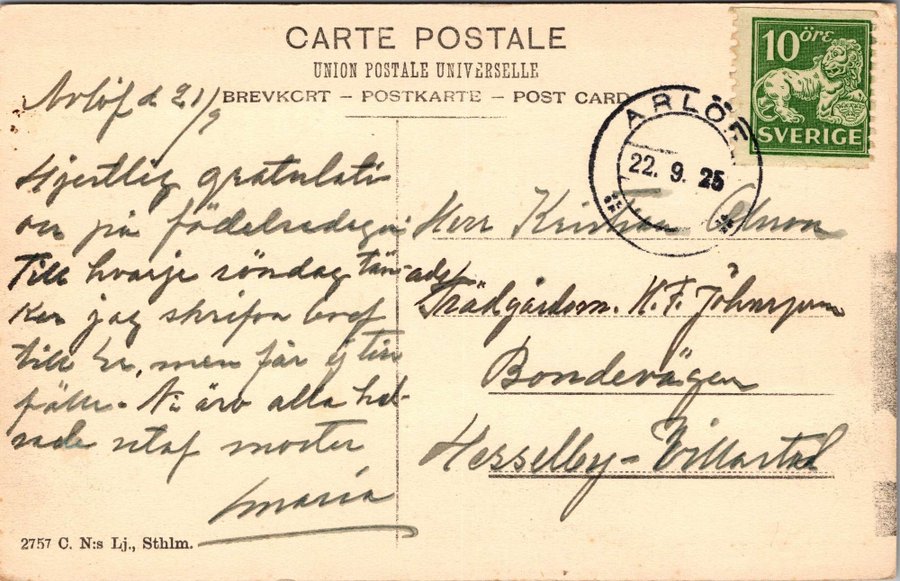 CARTE POSTALE
UNION POSTALE UNIVERSELLE
BREVKORT – POSTKARTE – POST CARD
10 öre
SVERIGE
ARLÖF
22. 9. 25
Arlöf d 21/9
Hjertlig gratulati
on på födelsedagen
Till hvarje söndag tän-
ker jag skrifva bref
till Er, men får ej till
fälle. Ni äro alla hel-
sade utaf moster
Maria
Herr Kristian Olsson
ads Trädgårdsm. K. F. Johansson
Bondevägen
Hesselby-Villastad
2757 C. N:s Lj., Sthlm.